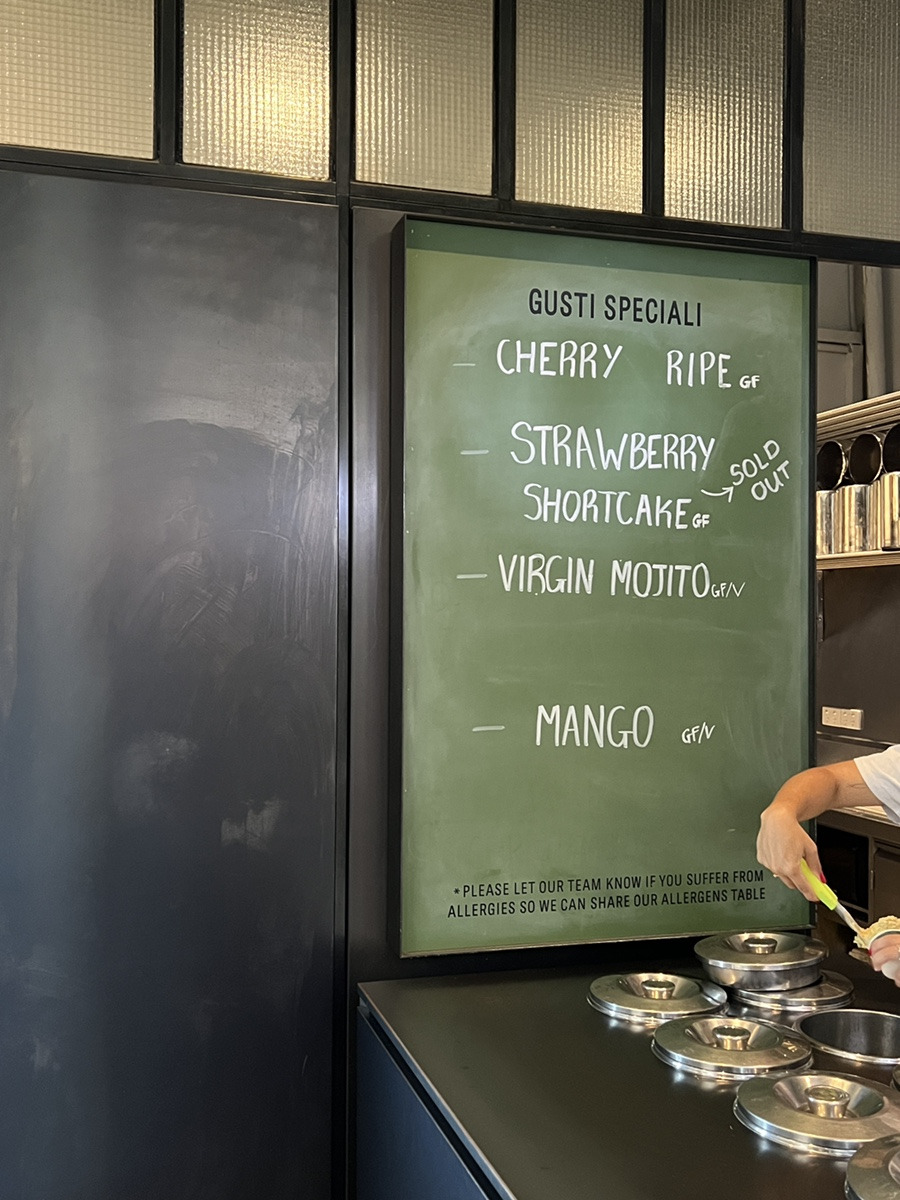 GUSTI SPECIALI
— CHERRY RIPE GF
— STRAWBERRY
SHORTCAKE GF → SOLD OUT
— VIRGIN MOJITO GF/V
— MANGO GF/V
*PLEASE LET OUR TEAM KNOW IF YOU SUFFER FROM
ALLERGIES SO WE CAN SHARE OUR ALLERGENS TABLE